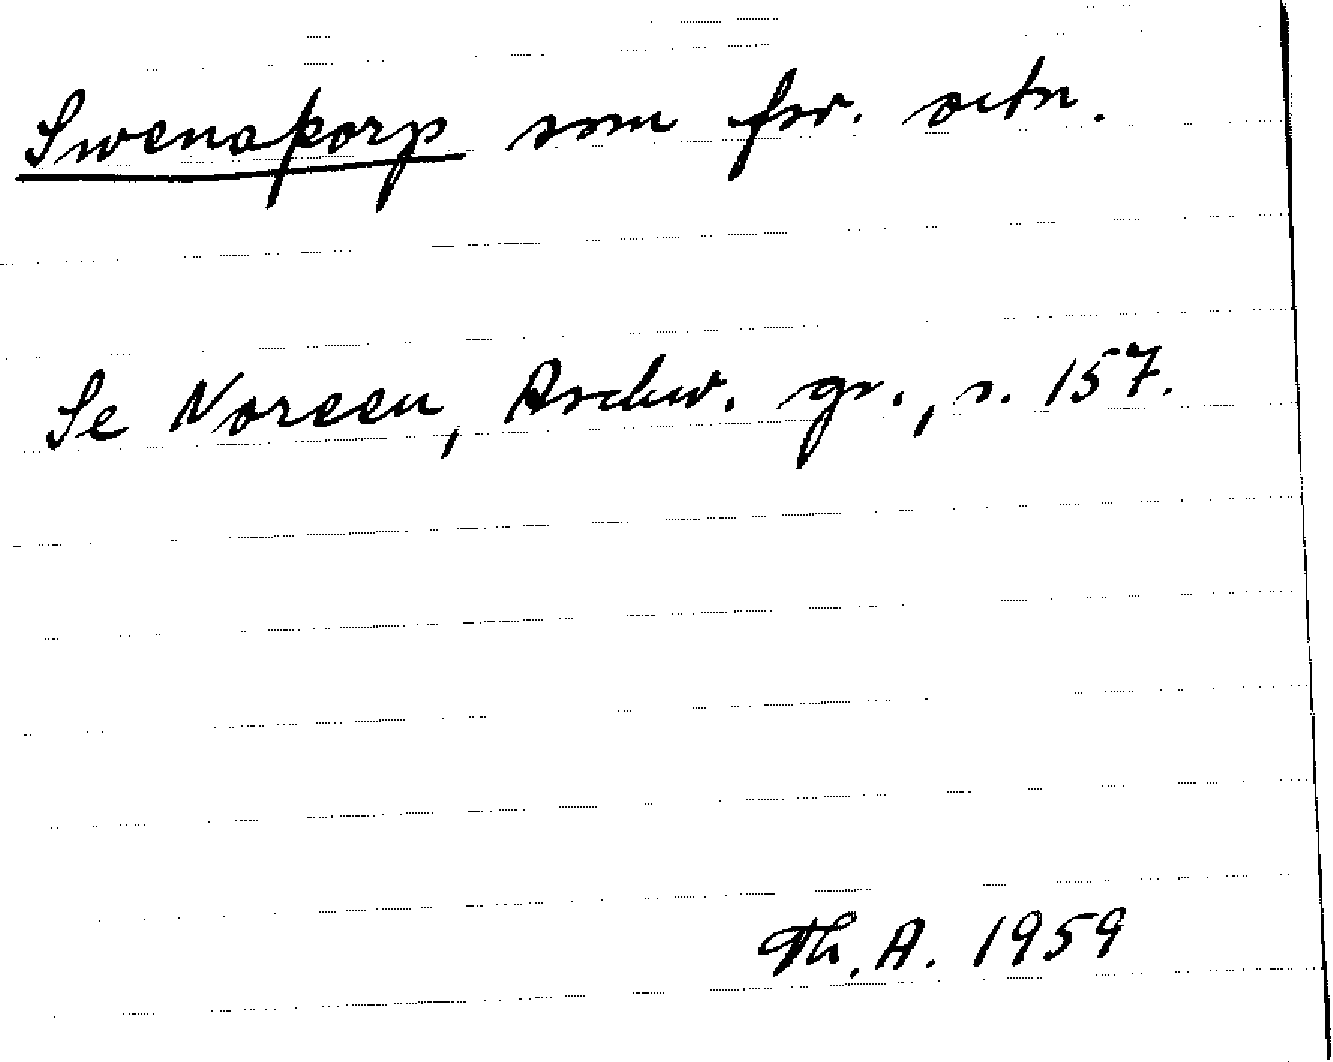 Swenaþorp som fsv. ortn.
Se Noreen, Aschw. gr., s. 157.
Th. A. 1959